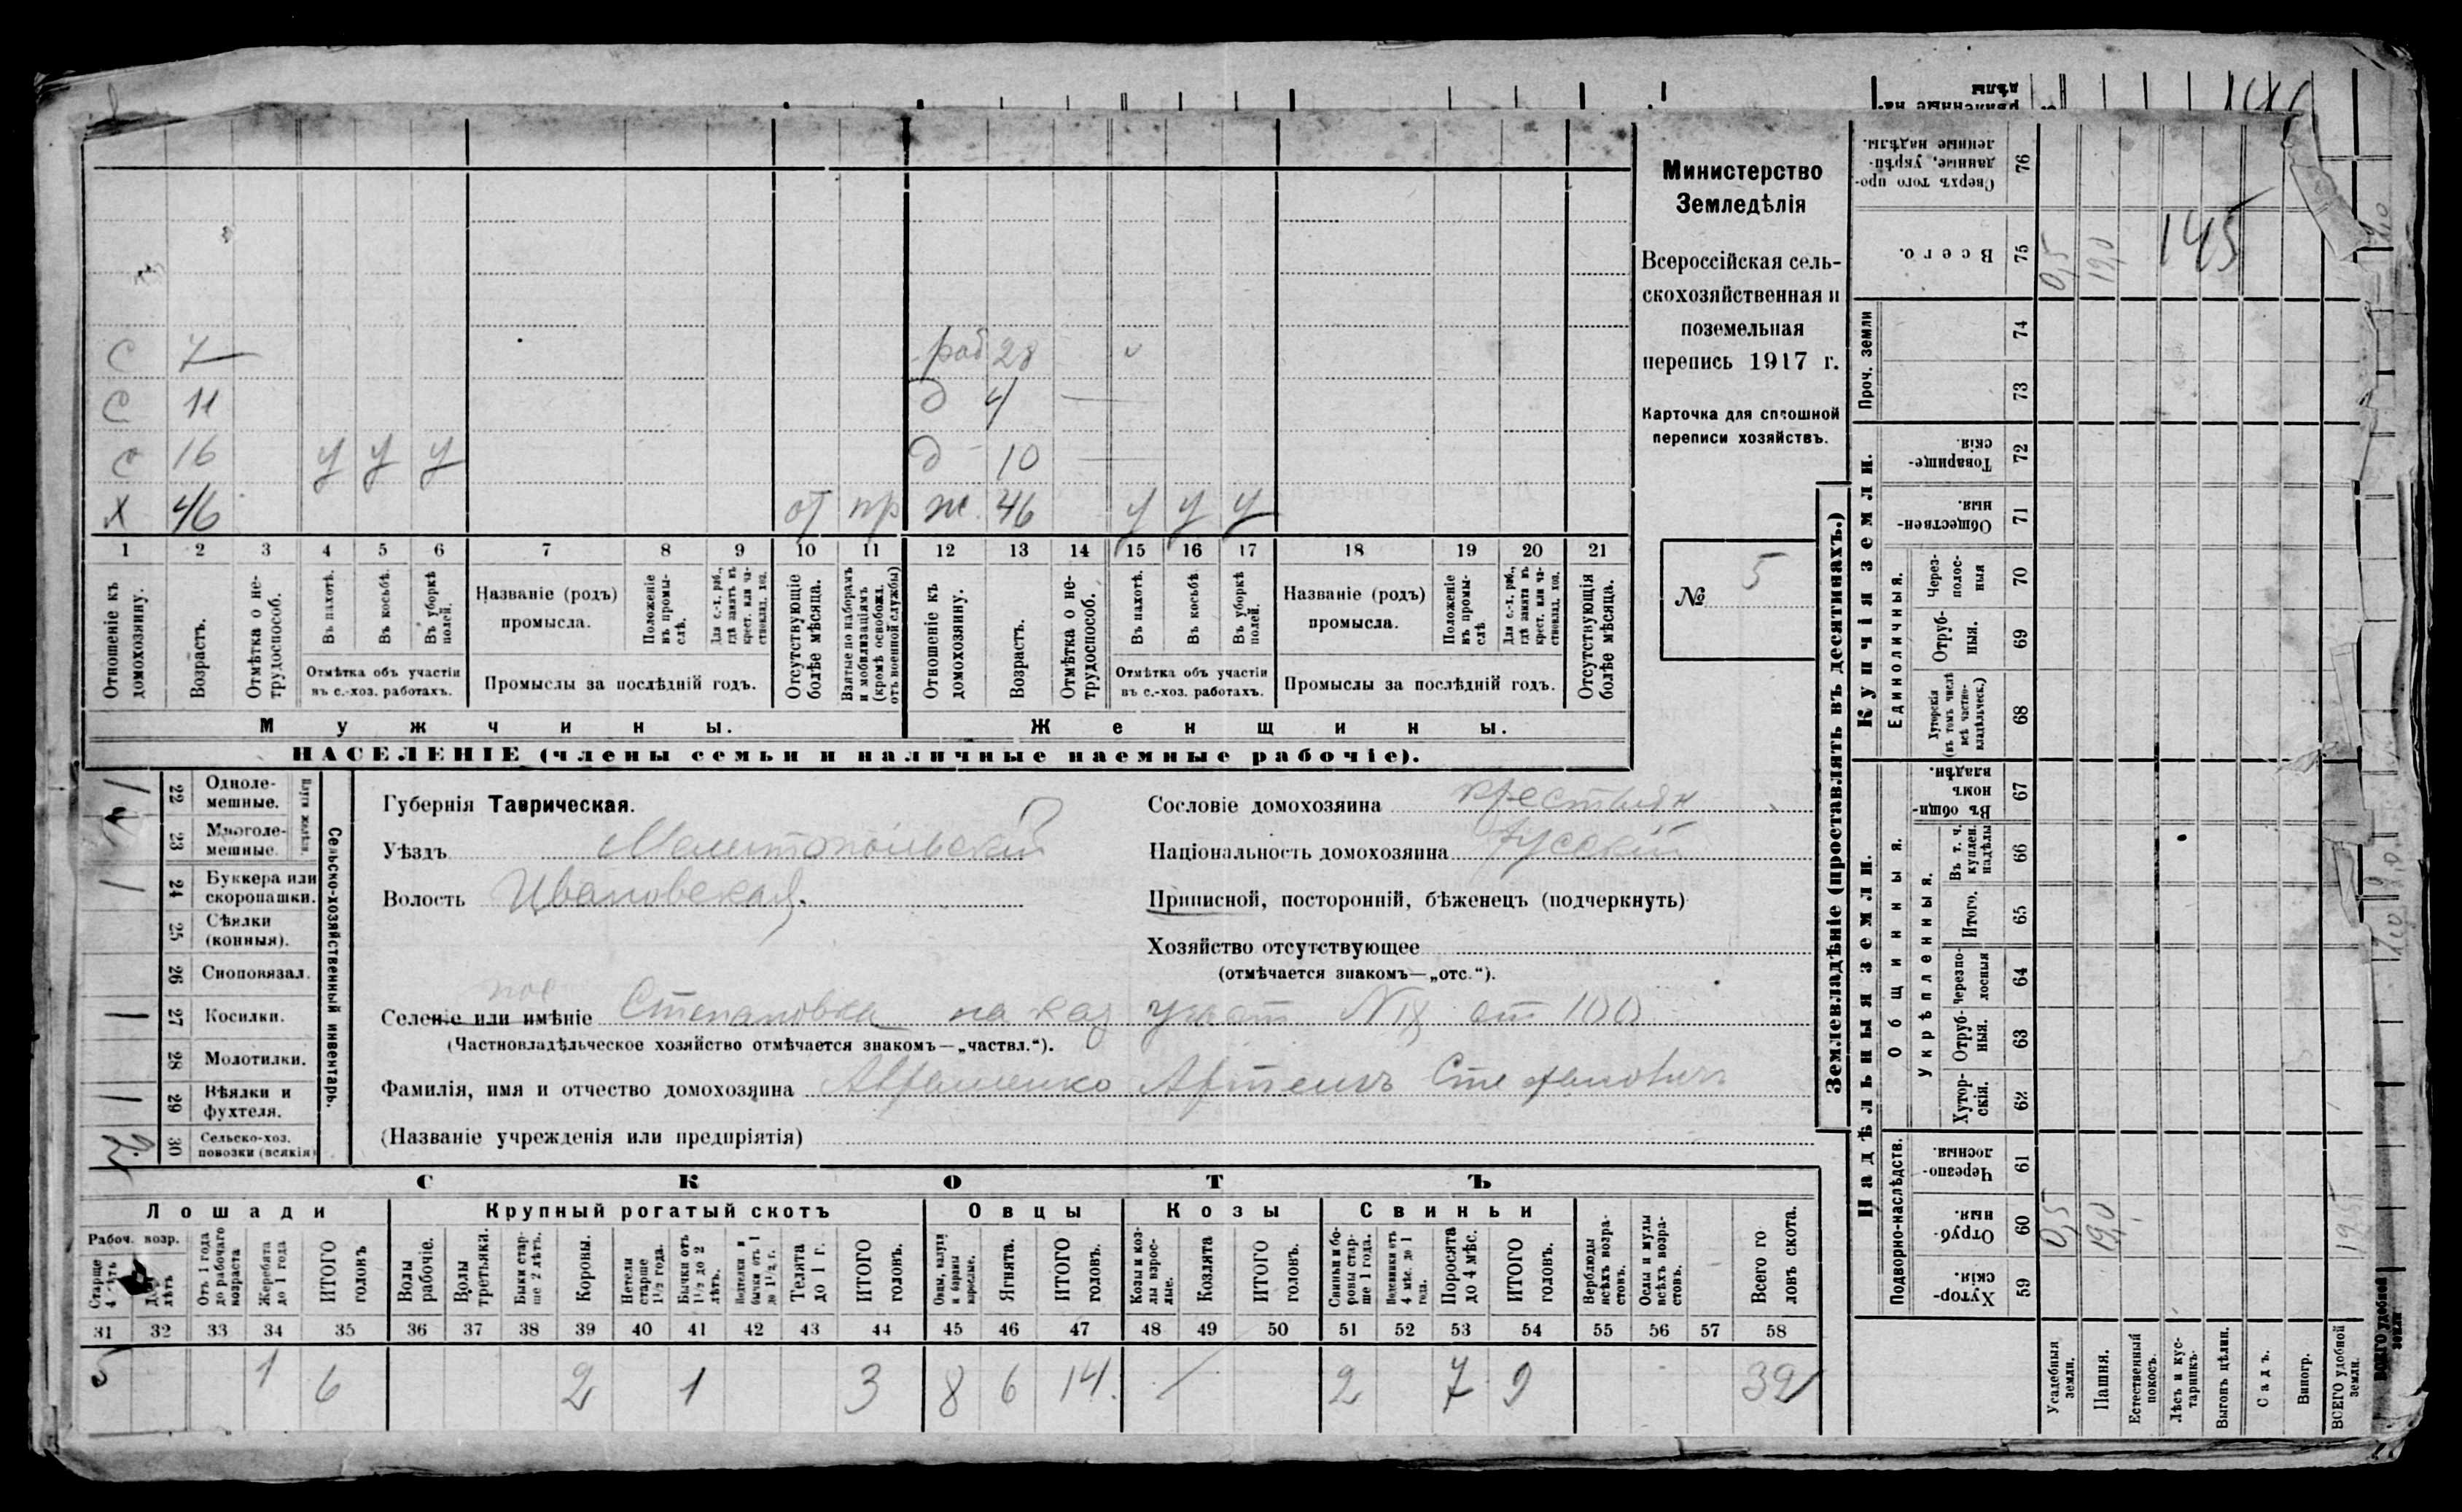 С 7 раб 28 v
С 11 д 4 —
С 16 у у у д 10 —
Х 46 от пр ж. 46 у у у
1 2 3 4 5 6 7 8 9 10 11 12 13 14 15 16 17 18 19 20 21
Отношеніе къ домохозяину.
Возрастъ.
Отмѣтка о не-трудоспособ.
Въ пахотѣ.
Въ косьбѣ.
Въ уборкѣ полей.
Отмѣтка объ участіи
въ с.-хоз. работахъ.
Названіе (родъ)
промысла.
Положеніе въ промы-слѣ.
Для с.-х. раб., гдѣ занятъ въ крест. или ча-стновлад. хоз.
Промыслы за послѣдній годъ.
Отсутствующіе болѣе мѣсяца.
Взятые по наборамъ и мобилизаціямъ (кромѣ освобожд. отъ военной службы)
Отношеніе къ домохозяину.
Возрастъ.
Отмѣтка о не-трудоспособ.
Въ пахотѣ.
Въ косьбѣ
Въ уборкѣ полей.
Отмѣтка объ участіи
въ с.-хоз. работахъ.
Названіе (родъ)
промысла.
Положеніе въ промы-слѣ
Для с.-х. раб., гдѣ занята въ крест. или ча-стновлад. хоз.
Промыслы за послѣдній годъ.
Отсутствующія болѣе мѣсяца.
Мужчины.
Женщины.
НАСЕЛЕНІЕ (члены семьи и наличные наемные рабочіе).
Министерство
Земледѣлія
Всероссійская сель-
скохозяйственная и
поземельная
перепись 1917 г.
Карточка для сплошной
переписи хозяйствъ.
№ 5
Сельско-хозяйственный инвентарь.
Плуги желѣзн.
22 Одноле-
мешные.
23 Многоле-
мешные.
24 Буккера или
скоропашки.
25 Сѣялки
(конныя).
26 Сноповязал.
27 Косилки.
28 Молотилки.
29 Вѣялки и
фухтеля.
2 30 Сельско-хоз.
повозки (всякія)
Губернія Таврическая.
Уѣздъ Мелитопольскій
Волость Ивановская.
пос
Селеніе или имѣніе Степановка на каз участ N IX от 100
(Частновладѣльческое хозяйство отмѣчается знакомъ—„частвл.“).
Фамилія, имя и отчество домохозяина Авраменко Артемъ Стефановичъ
(Названіе учрежденія или предпріятія)
Сословіе домохозяина крестьян
Національность домохозяина русскій
Приписной, посторонній, бѣженецъ (подчеркнуть)
Хозяйство отсутствующее
(отмѣчается знакомъ—„отс.“).
СКОТЪ
Лошади Крупный рогатый скотъ Овцы Козы Свиньи
Рабоч. возр.
Старше 4 лѣтъ
лѣтъ
Отъ 1 года до рабочаго возраста
Жеребята до 1 года
ИТОГО головъ
Волы рабочіе.
Волы третьяки.
Быки стар-ше 2 лѣтъ.
Коровы.
Нетели старше 1½ года.
Бычки отъ 1½ до 2 лѣтъ.
Подтелки и бычки отъ 1 до 1½ г.
Телята до 1 г.
ИТОГО головъ.
Овцы, валухи и бараны взрослые.
Ягнята.
ИТОГО головъ.
Козы и коз-лы взрос-лые.
Козлята
ИТОГО головъ.
Свиньи и бо-ровы стар-ше 1 года.
Подсвинки отъ 4 мѣс. до 1 года.
Поросята до 4 мѣс.
ИТОГО головъ.
Верблюды всѣхъ возра-стовъ.
Ослы и мулы всѣхъ возра-стовъ.
Всего го-ловъ скота.
31 32 33 34 35 36 37 38 39 40 41 42 43 44 45 46 47 48 49 50 51 52 53 54 55 56 57 58
5 1 6 2 1 3 8 6 14. 2 7 9 32
Землевладѣніе (проставлять въ десятинахъ.)
Надѣльныя земли.
Купчія земли.
Проч. земли
Подворно-наслѣдств.
Общинныя.
Укрѣпленныя.
Единоличныя.
Сверхъ того про-данные, укрѣп-ленные надѣлы. 76
Всего. 75 0,5 19,0 145
74
73
Товарище-скія. 72
Обществен-ныя. 71
Через-полос-ныя 70
Отруб-ныя. 69
Хуторскія (въ томъ числѣ всѣ частно-владѣльческ.) 68
Въ общи-номъ владѣн. 67
Въ т. ч. куплен. надѣлы 66
Итого. 65
Черезпо-лосныя 64
Отруб-ныя. 63
Хутор-скія. 62
Черезпо-лосныя. 61
Отруб-ныя. 60 0,5 19,0 19,5
Хутор-скія. 59
Усадебныя земли.
Пашня.
Естественный покосъ.
Лѣсъ и кус-тарникъ.
Выгонъ цѣлин.
Садъ.
Виногр.
ВСЕГО удобной земли.